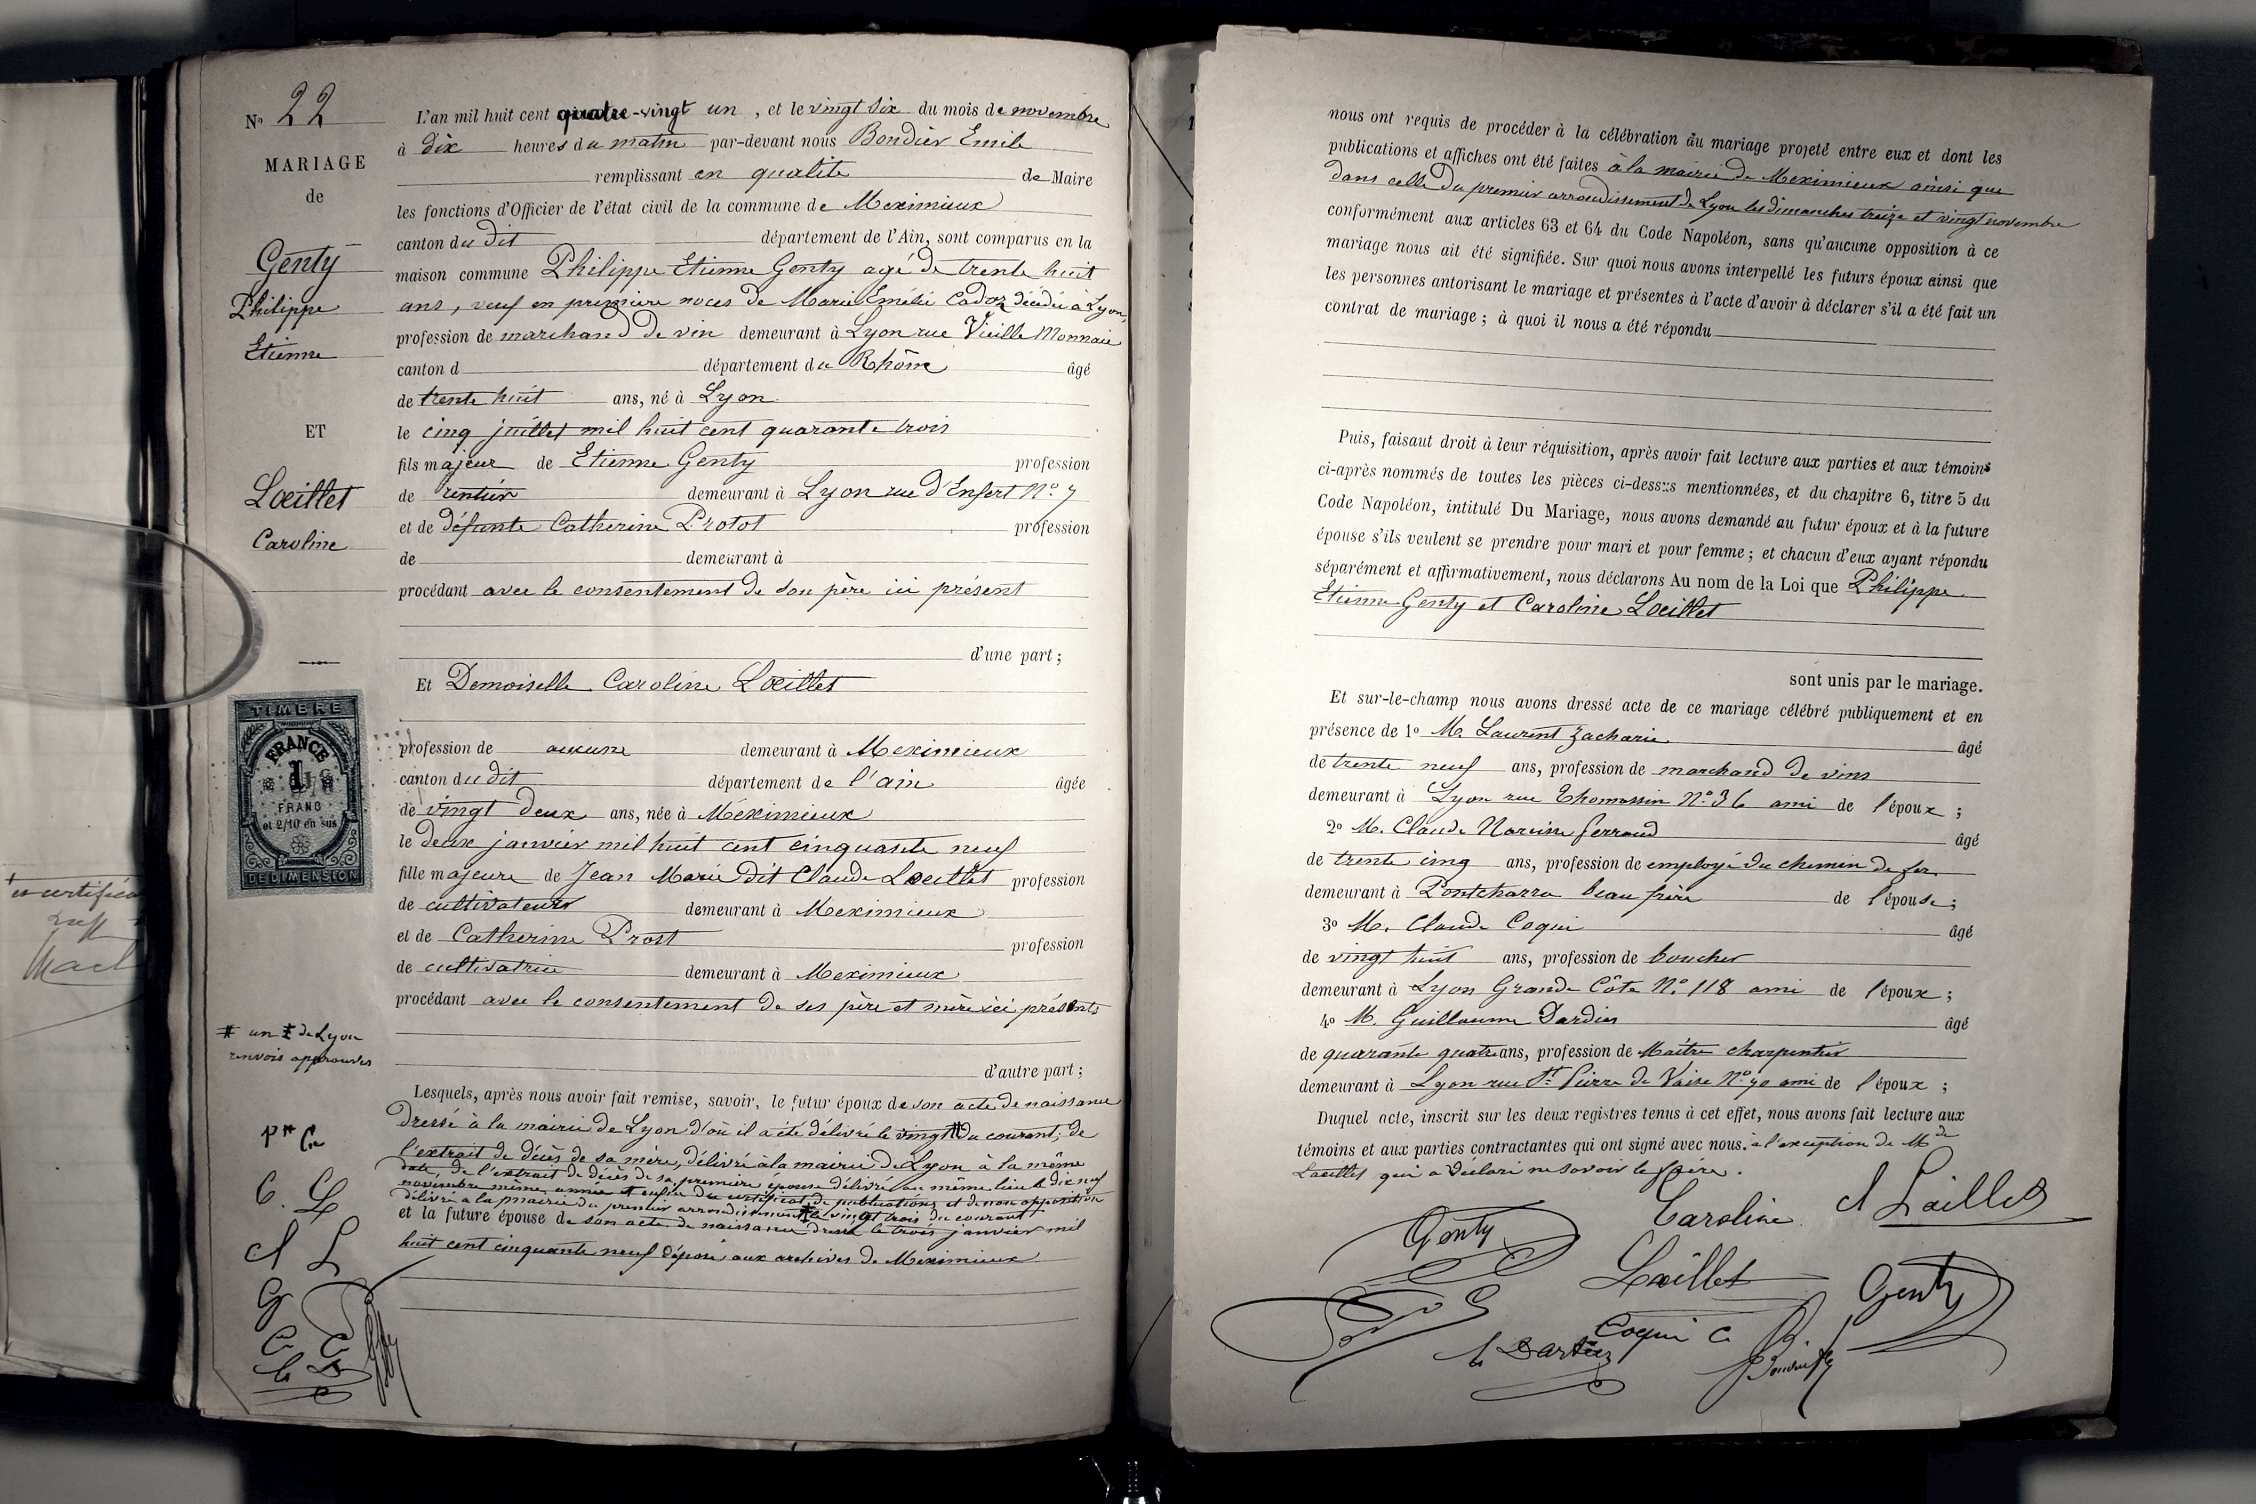 N° 22
MARIAGE
de
Genty
Philippe
Etienne
ET
Lœillet
Caroline
TIMBRE
FRANCE
1
FRANC
et 2/10 en sus
DE DIMENSION
# un ‡ de Lyon
renvois approuvés
C. L
L'an mil huit cent quatre-vingt un, et le vingt six du mois de novembre
à dix heures du matin par-devant nous Bondier Emile
remplissant en qualité de Maire
les fonctions d'Officier de l'état civil de la commune de Meximieux
canton du dit département de l'Ain, sont comparus en la
maison commune Philippe Etienne Genty agé de trente huit
ans, veuf en première noces de Marie Emélie Cadoz décédée à Lyon,
profession de marchand de vin demeurant à Lyon rue Vieille Monnaie
canton d département du Rhône âgé
de trente huit ans, né à Lyon
le cinq juillet mil huit cent quarante trois
fils majeur de Etienne Genty profession
de rentier demeurant à Lyon rue d'Enfert N° 7
et de défunte Catherine Protot profession
de demeurant à
procédant avec le consentement de son père ici présent
d'une part;
Et Demoiselle Caroline Lœillet
profession de aucune demeurant à Meximieux
canton du dit département de l'ain âgée
de vingt deux ans, née à Méximieux
le deux janvier mil huit cent cinquante neuf
fille majeure de Jean Marie dit Claude Lœillet profession
de cultivateur demeurant à Meximieux
et de Catherine Prost profession
de cultivatrice demeurant à Meximieux
procédant avec le consentement de ses père et mère ici présents
d'autre part;
Lesquels, après nous avoir fait remise, savoir, le futur époux de son acte de naissance
dressé à la mairie de Lyon d'où il a été délivré le vingt # du courant; de
l'extrait de décès de sa mère, délivré à la mairie de Lyon à la même
date, de l'extrait de décès de sa première épouse délivré au même lieu le dix neuf
novembre même année et enfin du certificat de publications et de non opposition
délivré a la mairie du premier arrondissement ‡ le vingt trois du courant
et la future épouse de son acte de naissance dressé le trois janvier mil
huit cent cinquante neuf déposé aux archives de Meximieux
nous ont requis de procéder à la célébration du mariage projeté entre eux et dont les
publications et affiches ont été faites à la mairie de Meximieux ainsi que
dans celle du premier arrondissement de Lyon les dimanches treize et vingt novembre
conformément aux articles 63 et 64 du Code Napoléon, sans qu'aucune opposition à ce
mariage nous ait été signifiée. Sur quoi nous avons interpellé les futurs époux ainsi que
les personnes antorisant le mariage et présentes à l'acte d'avoir à déclarer s'il a été fait un
contrat de mariage; à quoi il nous a été répondu
Puis, faisaut droit à leur réquisition, après avoir fait lecture aux parties et aux témoins
ci-après nommés de toutes les pièces ci-dessus mentionnées, et du chapitre 6, titre 5 du
Code Napoléon, intitulé Du Mariage, nous avons demandé au futur époux et à la future
épouse s'ils veulent se prendre pour mari et pour femme; et chacun d'eux ayant répondu
séparément et affirmativement, nous déclarons Au nom de la Loi que Philippe
Etienne Genty et Caroline Lœillet
sont unis par le mariage.
Et sur-le-champ nous avons dressé acte de ce mariage célébré publiquement et en
présence de 1° M. Laurent Zacharie âgé
de trente neuf ans, profession de marchand de vins
demeurant à Lyon rue Thomassin N° 36 ami de l'époux;
2° M. Claude Narcisse Ferraud âgé
de trente cinq ans, profession de employé du chemin de fer
demeurant à Pontcharra beau frère de l'épouse;
3° M. Claude Coqui âgé
de vingt huit ans, profession de boucher
demeurant à Lyon Grande Côte N° 118 ami de l'époux;
4° M. Guillaume Dardier âgé
de quarante quatre ans, profession de Maître charpentier
demeurant à Lyon rue St Pierre de Vaise N° 70 ami de l'époux;
Duquel acte, inscrit sur les deux registres tenus à cet effet, nous avons fait lecture aux
témoins et aux parties contractantes qui ont signé avec nous. à l'exception de Mde
Lœillet qui a déclaré ne savoir le faire.
Genty
Caroline
Lœillet
Genty
Coqui C